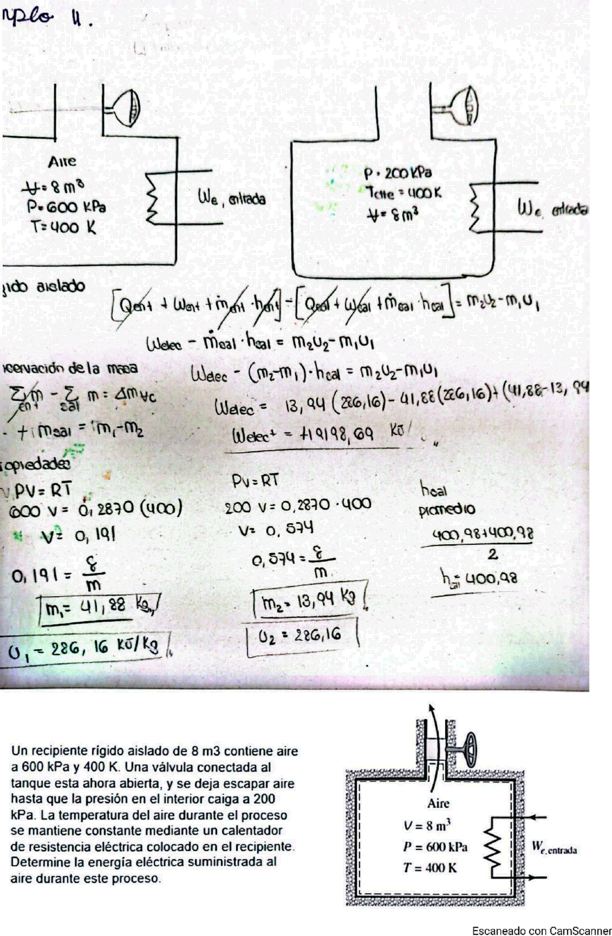 mplo 11.
Aire
V = 8 m³
P = 600 kPa
T = 400 K
We, entrada
P = 200 kPa
Tcte = 400 K
V = 8 m³
We, entrada
gido aislado
[Qent + Went + ṁent · hent] - [Qsal + Wsal + ṁsal · hsal] = m2U2 - m1U1
Welec - ṁsal · hsal = m2U2 - m1U1
servación de la masa
Welec - (m2 - m1) · hsal = m2U2 - m1U1
Σ ṁ - Σ m = ΔmVC
ent sal
Welec = 13,94 (286,16) - 41,88 (286,16) + (41,88 - 13,94
+ msal = m1 - m2
Welec = +19198,69 KJ
opiedades
PV = RT
600 v = 0,2870 (400)
v = 0,191
0,191 = 8/m
m1 = 41,88 Kg
U1 = 286,16 KJ/Kg
PV = RT
200 v = 0,2870 · 400
v = 0,574
0,574 = 8/m
m2 = 13,94 Kg
U2 = 286,16
hsal
promedio
400,98 + 400,98
2
hsal = 400,98
Un recipiente rígido aislado de 8 m3 contiene aire
a 600 kPa y 400 K. Una válvula conectada al
tanque esta ahora abierta, y se deja escapar aire
hasta que la presión en el interior caiga a 200
kPa. La temperatura del aire durante el proceso
se mantiene constante mediante un calentador
de resistencia eléctrica colocado en el recipiente.
Determine la energía eléctrica suministrada al
aire durante este proceso.
Aire
V = 8 m³
P = 600 kPa
T = 400 K
We, entrada
Escaneado con CamScanner